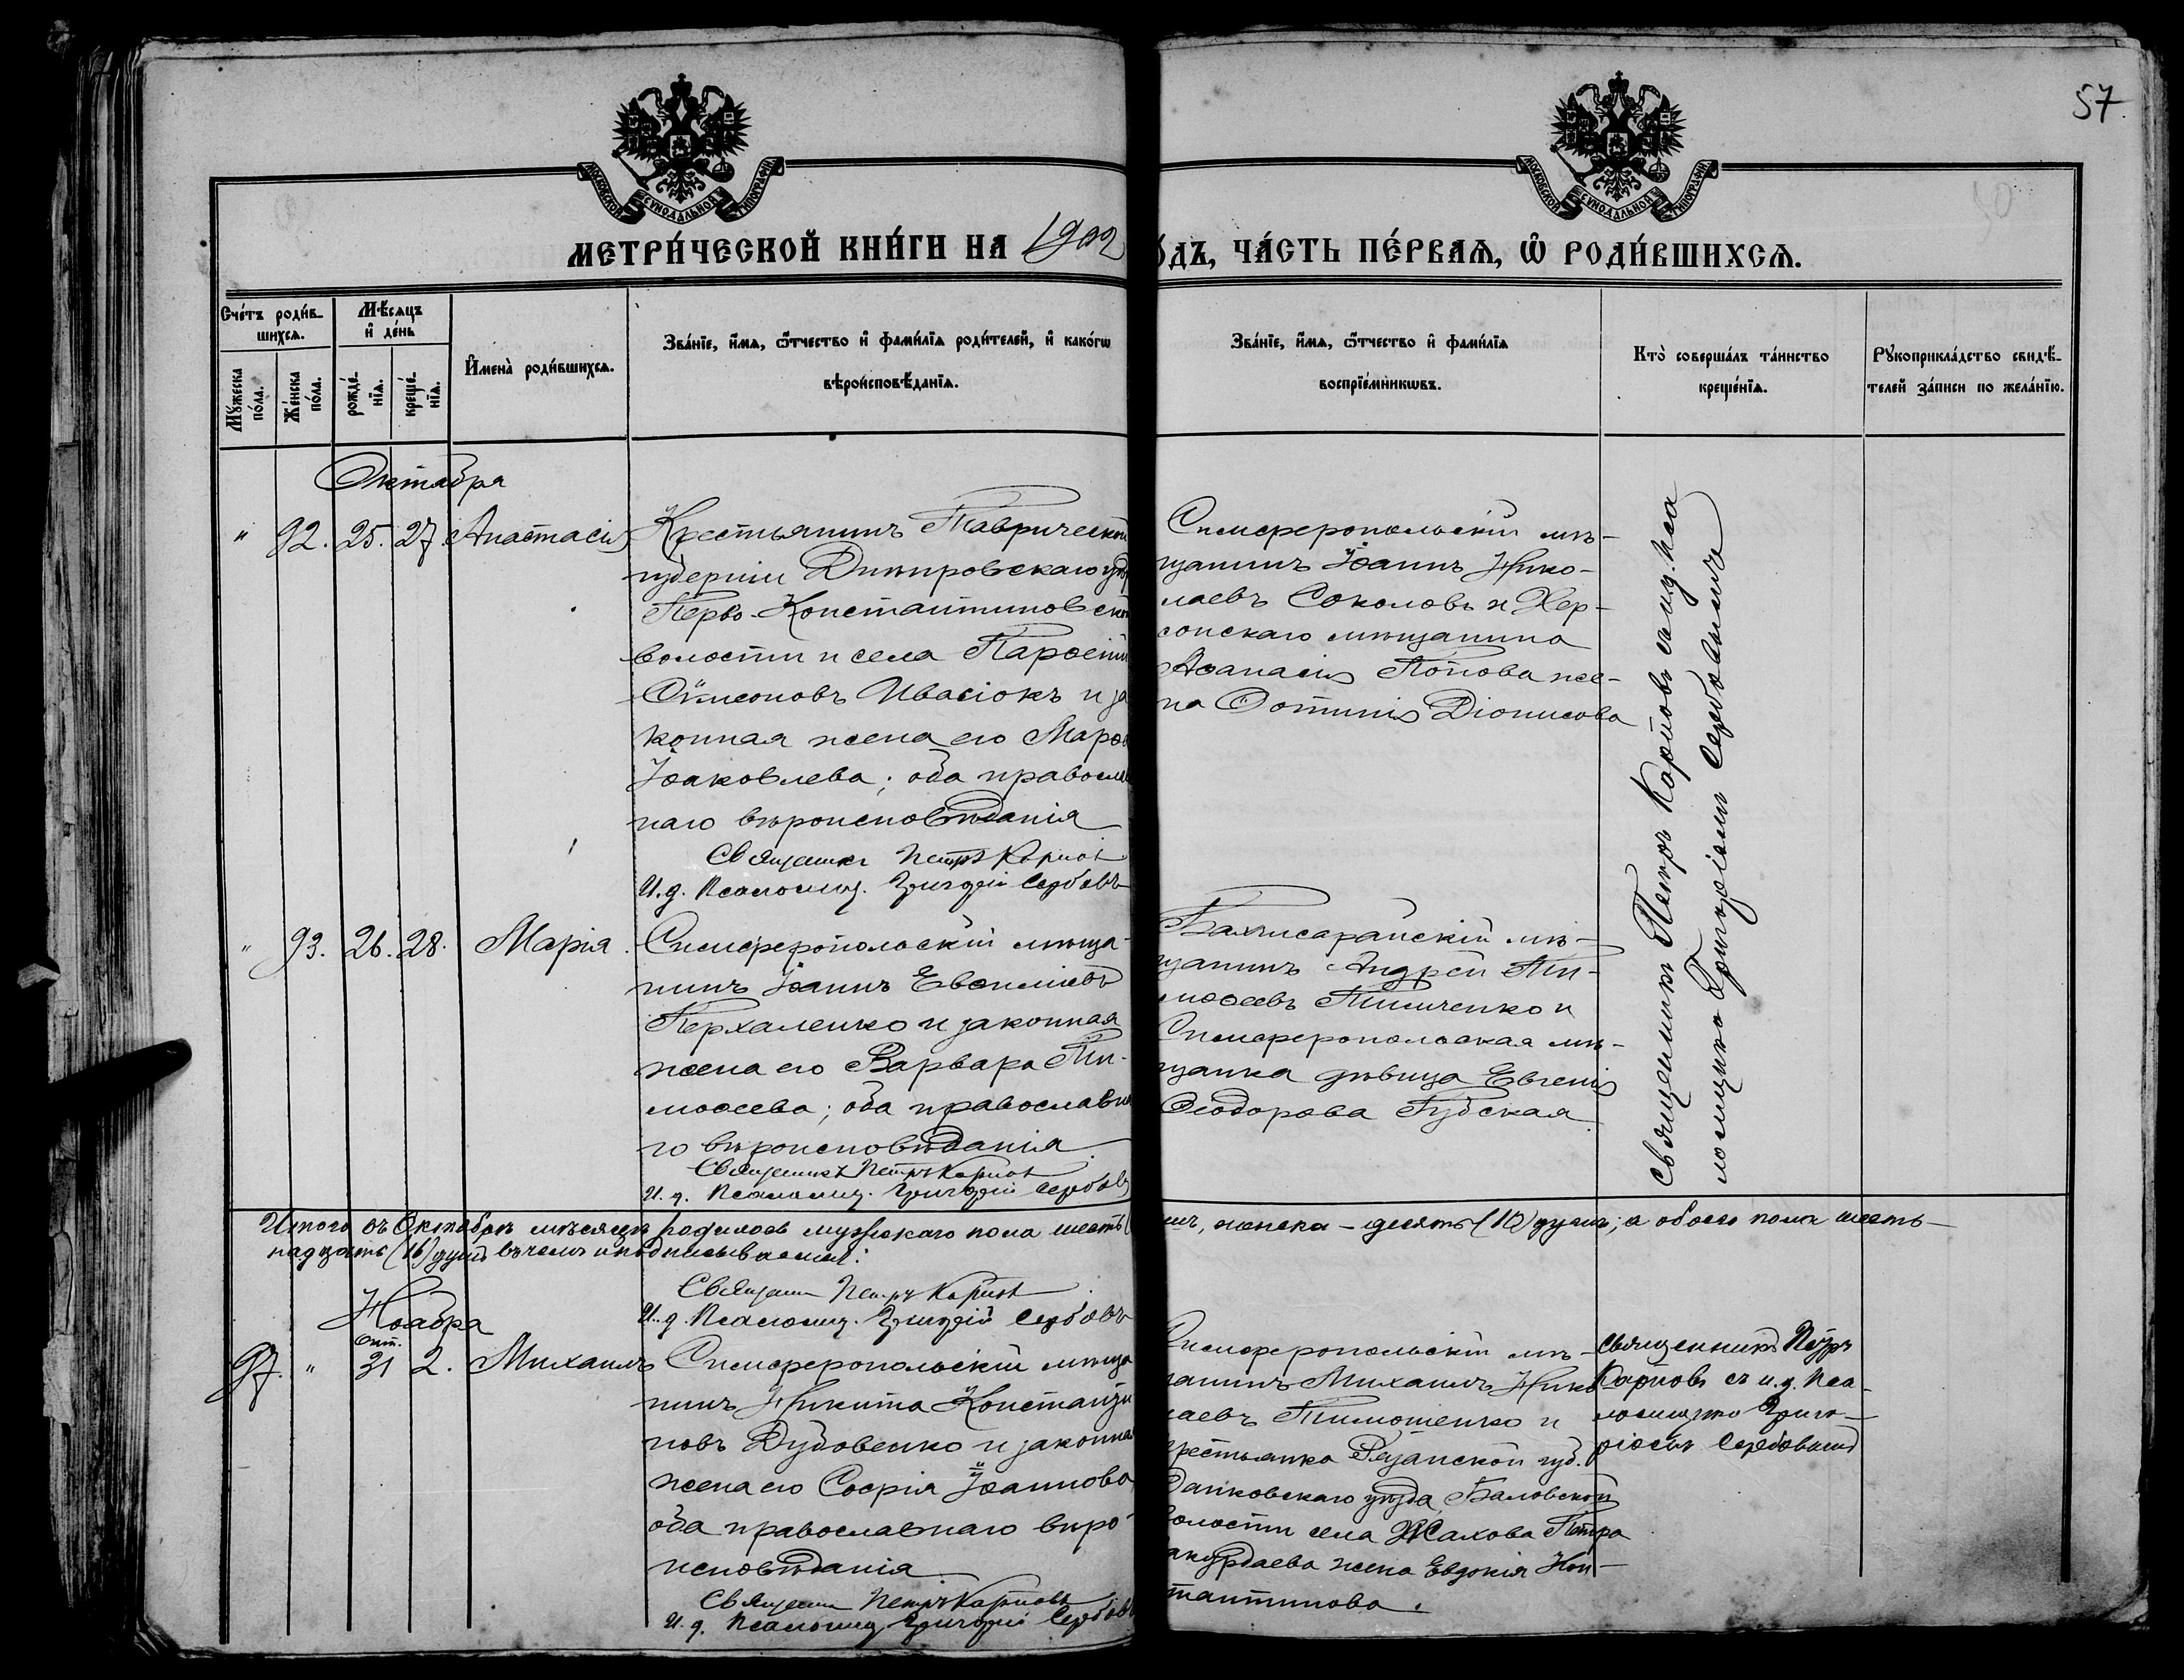 57.
МОСКОВСКОЙ СѴНОДАЛЬНОЙ ТИПОГРАФІИ
МОСКОВСКОЙ СѴНОДАЛЬНОЙ ТИПОГРАФІИ
МЕТРИ́ЧЕСКОЙ КНИ́ГИ НА 1902
ОДЪ, ЧА́СТЬ ПЕ́РВАѦ, Ѽ РОДИ́ВШИХСѦ.
Сче́тъ роди́в-
шихсѧ.
Мꙋ́жеска по́ла.
Же́нска по́ла.
Мѣ́сѧцъ
и҆ де́нь
рожде́-нїѧ.
креще́-нїѧ.
И҆мена̀ роди́вшихсѧ.
Зва́нїе, и҆́мѧ, ѻ҆́тчество и҆ фамі́лїѧ роди́телей, и҆ како́гѡ
вѣроисповѣ́данїѧ.
Зва́нїе, и҆́мѧ, ѻ҆́тчество и҆ фамі́лїѧ
воспрїе́мникѡвъ.
Кто̀ соверша́лъ та́инство
креще́нїѧ.
Рꙋкоприкла́дство свидѣ́-
телей за́писи по жела́нїю.
Октября
" 92. 25. 27. Анастасія
Крестьянинъ Таврической
губерніи Днѣпровскаго уѣз
Перво-Константиновской
волости и села Парѳеній
Сѵмеоновъ Ивасюкъ и за
конная жена его Марѳа
Іоаковлева; оба православ
наго вѣроисповѣданія
Священникъ Петръ Карпов
И. д. Псаломщ. Григорій Сербовъ
Симферопольскій мѣ-
щанинъ Іоаннъ Нико-
лаевъ Соколовъ и Хер-
сонскаго мѣщанина
Аѳанасія Попова же-
на Фотинія Діонисова
Священникъ Петръ Карповъ съ и. д. Пса
ломщика Григоріемъ Сербовымъ
" 93. 26. 28. Марія.
Симферопольскій мѣща-
нинъ Іоаннъ Евѳиміевъ
Перхаленко и законная
жена его Варвара Ти-
моѳеева; оба православна
го вѣроисповѣданія.
Священникъ Петръ Карпов
И. д. Псаломщ. Григорій Сербовъ
Бахчисарайскій мѣ-
щанинъ Андрей Ти-
моѳеевъ Тимченко и
Симферопольская мѣ-
щанка дѣвица Евгенія
Ѳеодорова Губская.
Итого въ Октябрѣ мѣсяцѣ родилось мужскаго пола шесть ( женска - десять (10) душъ; а обоего пола шест-
надцать (16) душъ въ чемъ и подписываемся:
Священн Петръ Карпов
И. д. Псаломщ. Григорій Сербовъ
Ноября
Окт.
97. " 31 2. Михаилъ
Симферопольскій мѣща
нинъ Никита Константи
новъ Дудовенко и законна
жена его Софія Іоаннова
оба православнаго вѣро-
исповѣданія.
Священн Петръ Карповъ
И. д. Псаломщ Григорій Сербовъ
Симферопольскій мѣ-
щанинъ Михаилъ Нико
лаевъ Тимошенко и
крестьянка Рязанской губ.
Данковскаго уѣзда Баловской
волости села Жахова Петра
акурдаева жена Евдокія Кон-
стантинова.
Священникъ Петръ
Карповъ съ и. д. Пса-
ломщика Григо-
ріемъ Сербовымъ